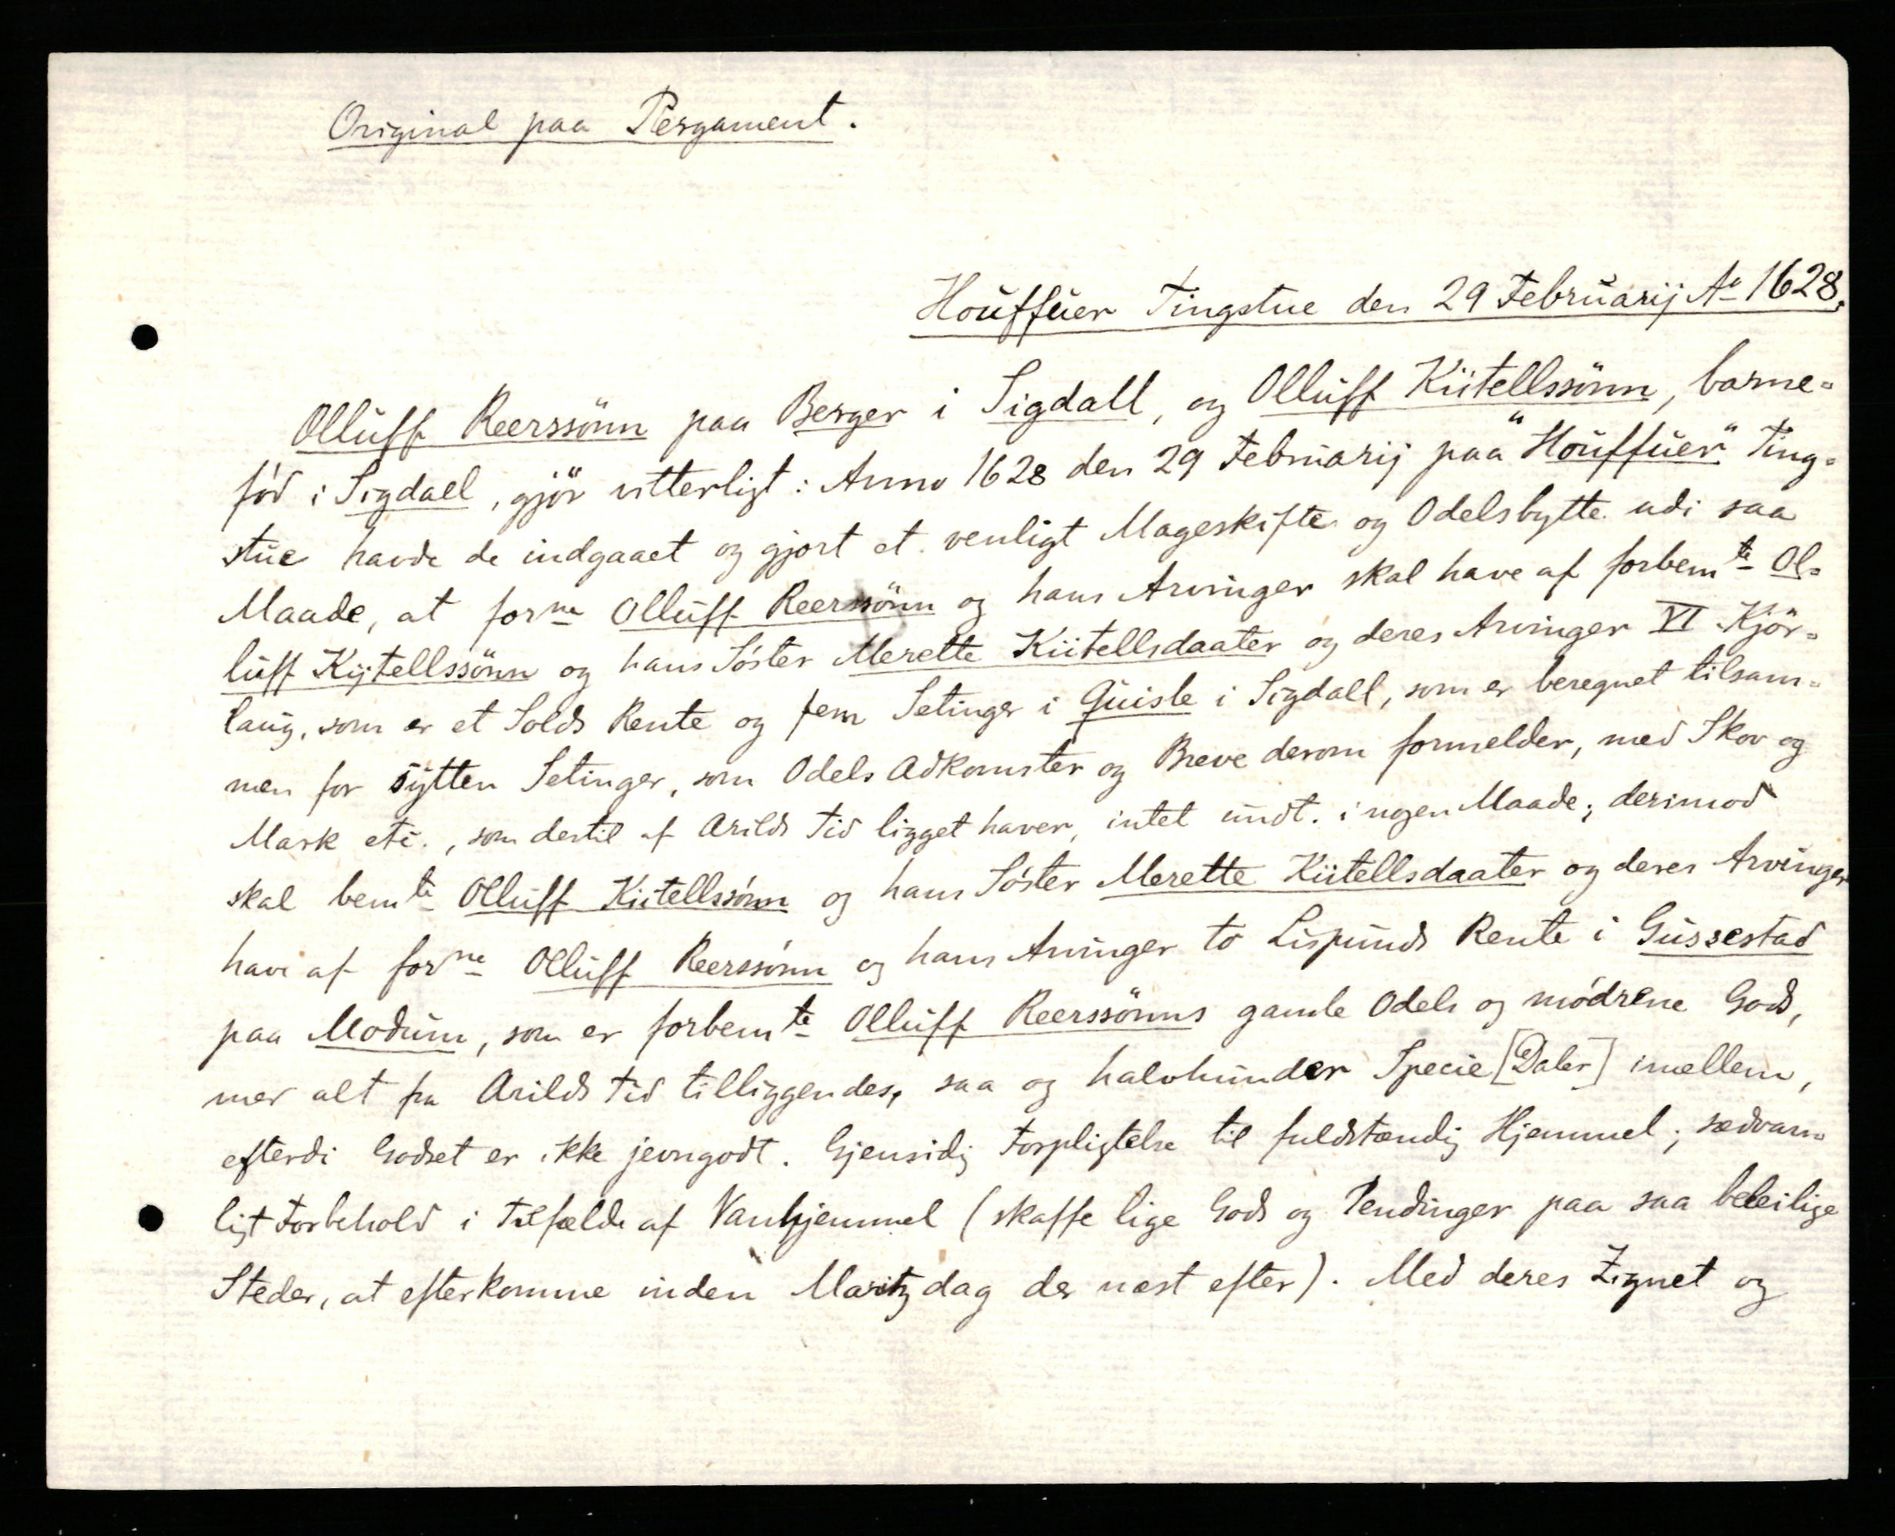 Original paa Pergament.
Houffuer Tingstue den 29 Februarij Ao 1628.
Olluff Reerssönn paa Berger i Sigdall, og Olluff Kiitellssönn, barne=
fód i Sigdael, gjör vitterligt: Anno 1628 den 29 Februarij paa "Houffuer" Ting=
stue havde de indgaaet og gjort et venligt Mageskifte og Odelsbytte udi saa
Maade, at forne Olluff Reerssönn og hans Arvinger skal have af forbemte Ol=
luff Kijtellssönn og hans Sóster Merette Kiitellsdaater og deres Arvinger VI Kjör=
laug, som er et Solds Rente og fem Setinger i Quisle i Sigdall, som er beregnet tilsam=
men for sytten Setinger, som Odels Adkomster og Breve derom formelder, med Skov og
Mark etc., som dertil af Arilds Tid ligget haver, intet undt. i nogen Maade; derimod
skal bemte Olluff Kiitellssónn og hans Sóster Merette Kiitellsdaater og deres Arvinger
have af forne Olluff Reerssónn og hans Arvinger to Lispunds Rente i Gussestad
paa Modum, som er forbemte Olluff Reerssönns gamle Odels og módrene Gods,
mer alt fra Arilds Tid tilliggendes, saa og halvhunder Specie [Daler] imellem,
efterdi Godset er ikke jevngodt. Gjensidig Forpligtelse til fuldstændig Hjemmel; sædvan=
ligt Forbehold i Tilfælde af Vanhjemmel (skaffe lige Gods og Pendinger paa saa beleilige
Steder, at efterkomme inden Maritz dag der næst efter). Med deres Zignet og